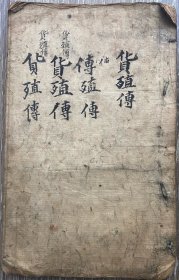 貨殖傳
傳殖傳
貨殖傳
貨殖傳
貨殖傳
貨殖傳